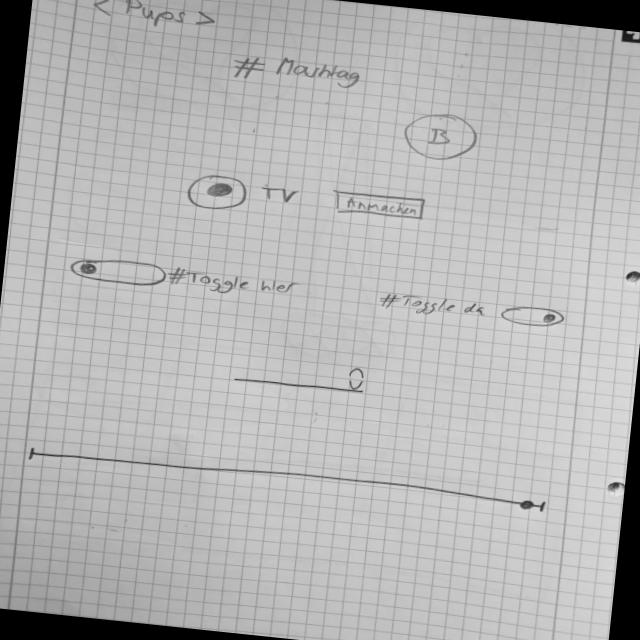 <Pups>
# Mauhtag
B
TV
Anmachen
#Toggle hier
#Toggle da